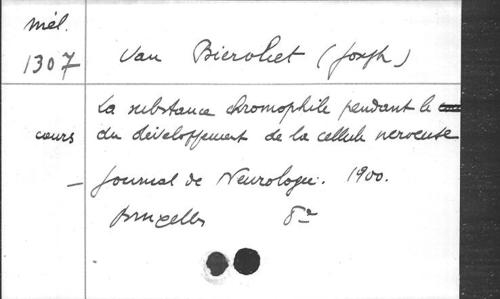 Mél.
1307 Van Biervliet (Joseph)
La substance chromophile pendant le
cours du développement de la cellule nerveuse
– Journal de Neurologie. 1900.
Bruxelles 8°